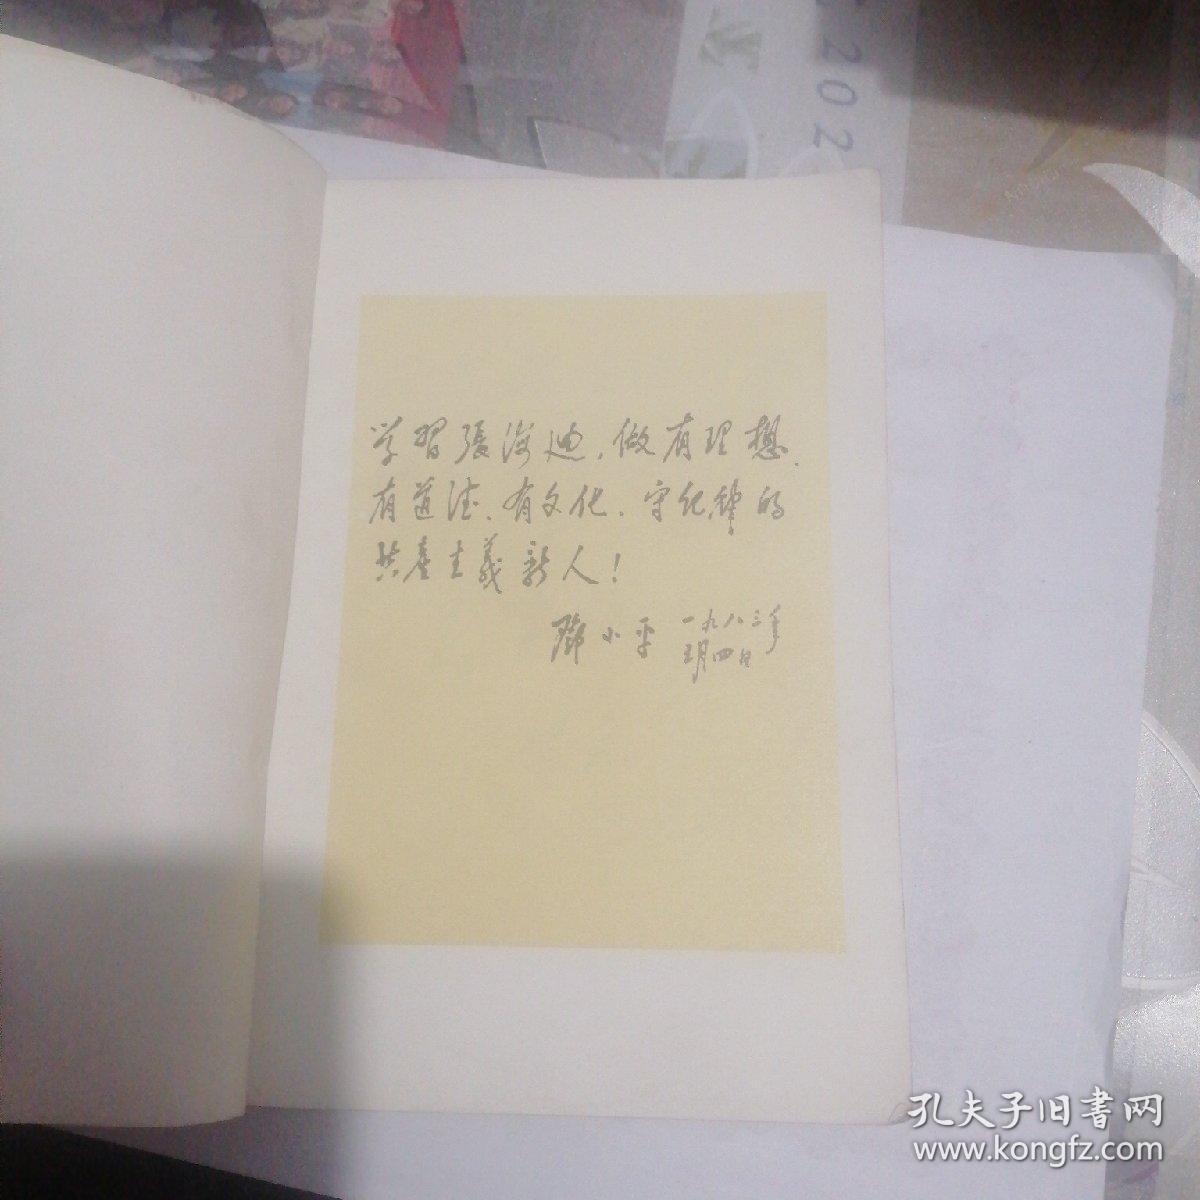 202
202
学習張海迪，做有理想、
有道德、有文化、守纪律的
共產主義新人！
鄧小平 一九八三年
五月四日
孔夫子旧書网
www.kongfz.com